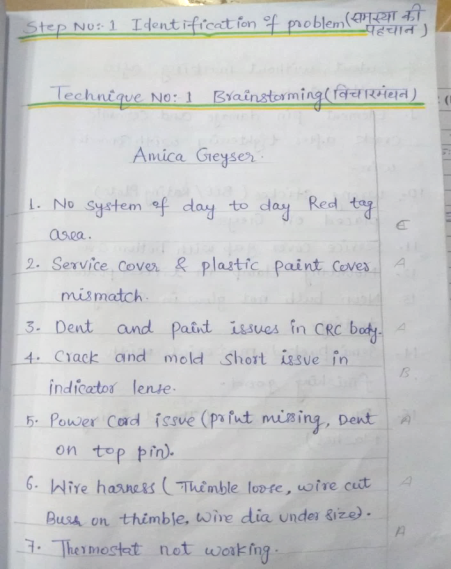 Step No:- 1 Identification of problem (समस्या की पहचान)
Technique No: 1 Brainstorming (विचारमंथन)
Amica Geyser.
1. No system of day to day Red tag
area. C
2. Service cover & plastic paint cover A
mismatch.
3. Dent and paint issues in CRC body. A
4. Crack and mold short issue in
indicator lense. B
5. Power Cord issue (print missing, Dent A
on top pin).
6. Wire harness ( Thimble loose, wire cut A
Bush on thimble, wire dia under size).
7. Thermostat not working. A